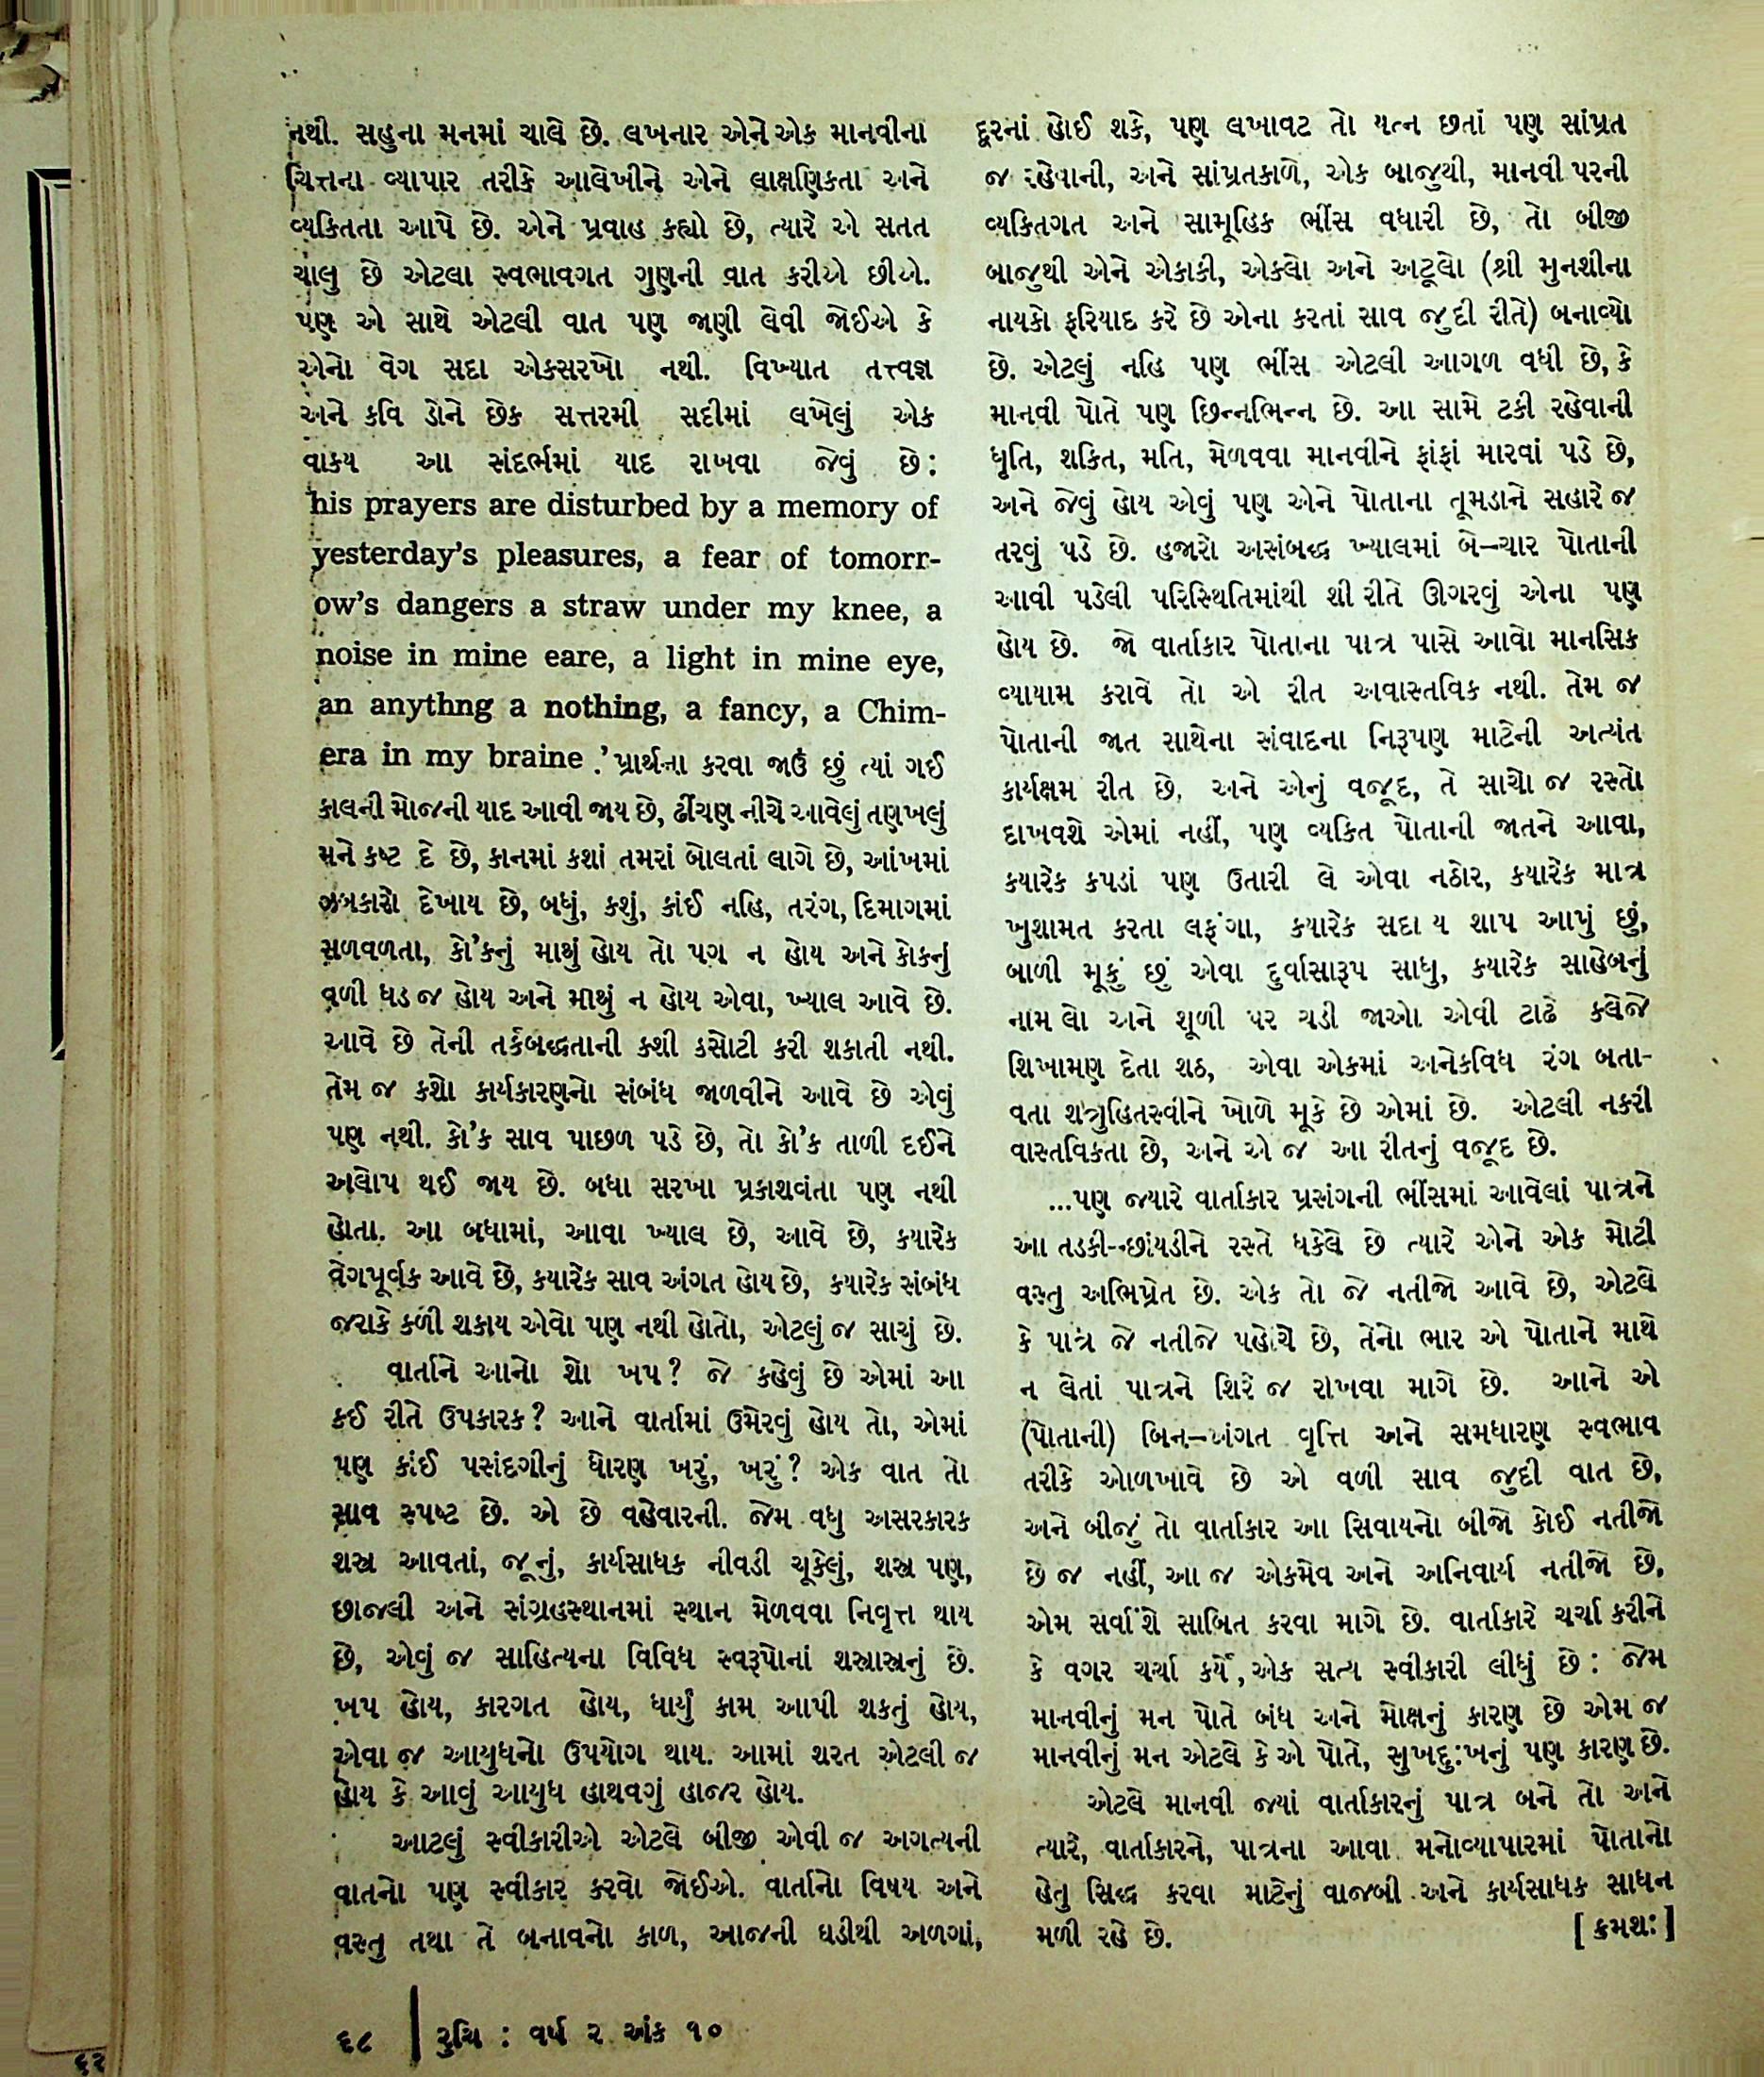 નથી. સહુના મનમાં ચાલે છે. લખનાર એને એક માનવીના
ચિત્તના વ્યાપાર તરીકે આલેખીને એને લાક્ષણિકતા અને
વ્યકિતતા આપે છે. એને પ્રવાહ કહ્યો છે, ત્યારે એ સતત
ચાલુ છે એટલા સ્વભાવગત ગુણની વાત કરીએ છીએ.
પણ એ સાથે એટલી વાત પણ જાણી લેવી જોઈએ કે
એનો વેગ સદા એકસરખો નથી. વિખ્યાત તત્ત્વજ્ઞ
અને કવિ ડોને છેક સત્તરમી સદીમાં લખેલું એક
વાકય આ સંદર્ભમાં યાદ રાખવા જેવું છે:
'his prayers are disturbed by a memory of
yesterday's pleasures, a fear of tomorr-
ow's dangers a straw under my knee, a
noise in mine eare, a light in mine eye,
an anythng a nothing, a fancy, a Chim-
era in my braine.' પ્રાર્થના કરવા જાઉં છું ત્યાં ગઈ
કાલની મોજની યાદ આવી જાય છે, ઢીંચણ નીચે આવેલું તણખલું
મને કષ્ટ દે છે, કાનમાં કશાં તમરાં બોલતાં લાગે છે, આંખમાં
ઝબકારો દેખાય છે, બધું, કશું, કાંઈ નહિ, તરંગ, દિમાગમાં
સળવળતા, કો'કનું માથું હોય તો પગ ન હોય અને કોકનું
વળી ધડ જ હોય અને માથું ન હોય એવા, ખ્યાલ આવે છે.
આવે છે તેની તર્કબદ્ધતાની કશી કસોટી કરી શકાતી નથી.
તેમ જ કશો કાર્યકારણનો સંબંધ જાળવીને આવે છે એવું
પણ નથી. કો'ક સાવ પાછળ પડે છે, તો કો'ક તાળી દઈને
અલોપ થઈ જાય છે. બધા સરખા પ્રકાશવંતા પણ નથી
હોતા. આ બધામાં, આવા ખ્યાલ છે, આવે છે, કયારેક
વેગપૂર્વક આવે છે, કયારેક સાવ અંગત હોય છે, કયારેક સંબંધ
જરાકે કળી શકાય એવો પણ નથી હોતો, એટલું જ સાચું છે.
વાર્તાને આનો શો ખપ? જે કહેવું છે એમાં આ
કઈ રીતે ઉપકારક? આને વાર્તામાં ઉમેરવું હોય તો, એમાં
પણ કાંઈ પસંદગીનું ધોરણ ખરું, ખરું? એક વાત તો
સાવ સ્પષ્ટ છે. એ છે વહેવારની. જેમ વધુ અસરકારક
શસ્ત્ર આવતાં, જૂનું, કાર્યસાધક નીવડી ચૂકેલું, શસ્ત્ર પણ,
છાજલી અને સંગ્રહસ્થાનમાં સ્થાન મેળવવા નિવૃત્ત થાય
છે, એવું જ સાહિત્યના વિવિધ સ્વરૂપોનાં શસ્ત્રાસ્ત્રનું છે.
ખપ હોય, કારગત હોય, ધાર્યું કામ આપી શકતું હોય,
એવા જ આયુધનો ઉપયોગ થાય. આમાં શરત એટલી જ
હોય કે આવું આયુધ હાથવગું હાજર હોય.
આટલું સ્વીકારીએ એટલે બીજી એવી જ અગત્યની
વાતનો પણ સ્વીકાર કરવો જોઈએ. વાર્તાનો વિષય અને
વસ્તુ તથા તે બનાવનો કાળ, આજની ઘડીથી અળગાં,
દૂરનાં હોઈ શકે, પણ લખાવટ તો યત્ન છતાં પણ સાંપ્રત
જ રહેવાની, અને સાંપ્રતકાળે, એક બાજુથી, માનવી પરની
વ્યકિતગત અને સામૂહિક ભીંસ વધારી છે, તો બીજી
બાજુથી એને એકાકી, એકલો અને અટૂલો (શ્રી મુનશીના
નાયકો ફરિયાદ કરે છે એના કરતાં સાવ જુદી રીતે) બનાવ્યો
છે. એટલું નહિ પણ ભીંસ એટલી આગળ વધી છે, કે
માનવી પોતે પણ છિન્નભિન્ન છે. આ સામે ટકી રહેવાની
ધૃતિ, શકિત, મતિ, મેળવવા માનવીને ફાંફાં મારવાં પડે છે,
અને જેવું હોય એવું પણ એને પોતાના તૂમડાને સહારે જ
તરવું પડે છે. હજારો અસંબદ્ધ ખ્યાલમાં બે–ચાર પોતાની
આવી પડેલી પરિસ્થિતિમાંથી શી રીતે ઊગરવું એના પણ
હોય છે. જો વાર્તાકાર પોતાના પાત્ર પાસે આવો માનસિક
વ્યાયામ કરાવે તો એ રીત અવાસ્તવિક નથી. તેમ જ
પોતાની જાત સાથેના સંવાદના નિરૂપણ માટેની અત્યંત
કાર્યક્ષમ રીત છે. અને એનું વજૂદ, તે સાચો જ રસ્તો
દાખવશે એમાં નહીં, પણ વ્યકિત પોતાની જાતને આવા,
કયારેક કપડાં પણ ઉતારી લે એવા નઠોર, કયારેક માત્ર
ખુશામત કરતા લફંગા, કયારેક સદા ય શાપ આપું છું,
બાળી મૂકું છું એવા દુર્વાસારૂપ સાધુ, કયારેક સાહેબનું
નામ લો અને શૂળી પર ચડી જાઓ એવી ટાઢે કલેજે
શિખામણ દેતા શઠ, એવા એકમાં અનેકવિધ રંગ બતા-
વતા શત્રુહિતસ્વીને ખોળે મૂકે છે એમાં છે. એટલી નકરી
વાસ્તવિકતા છે, અને એ જ આ રીતનું વજૂદ છે.
...પણ જયારે વાર્તાકાર પ્રસંગની ભીંસમાં આવેલાં પાત્રને
આ તડકી–છાંયડીને રસ્તે ધકેલે છે ત્યારે એને એક મોટી
વસ્તુ અભિપ્રેત છે. એક તો જે નતીજો આવે છે, એટલે
કે પાત્ર જે નતીજે પહોંચે છે, તેનો ભાર એ પોતાને માથે
ન લેતાં પાત્રને શિરે જ રાખવા માગે છે. આને એ
(પોતાની) બિન–અંગત વૃત્તિ અને સમધારણ સ્વભાવ
તરીકે ઓળખાવે છે એ વળી સાવ જુદી વાત છે.
અને બીજું તો વાર્તાકાર આ સિવાયનો બીજો કોઈ નતીજો
છે જ નહીં, આ જ એકમેવ અને અનિવાર્ય નતીજો છે,
એમ સર્વાંશે સાબિત કરવા માગે છે. વાર્તાકારે ચર્ચા કરીને
કે વગર ચર્ચા કર્યે, એક સત્ય સ્વીકારી લીધું છે: જેમ
માનવીનું મન પોતે બંધ અને મોક્ષનું કારણ છે એમ જ
માનવીનું મન એટલે કે એ પોતે, સુખદુઃખનું પણ કારણ છે.
એટલે માનવી જયાં વાર્તાકારનું પાત્ર બને તો અને
ત્યારે, વાર્તાકારને, પાત્રના આવા મનોવ્યાપારમાં પોતાનો
હેતુ સિદ્ધ કરવા માટેનું વાજબી અને કાર્યસાધક સાધન
મળી રહે છે. [ ક્રમશઃ ]
૬૮ | રુચિ : વર્ષ ૨ અંક ૧૦
૬૨